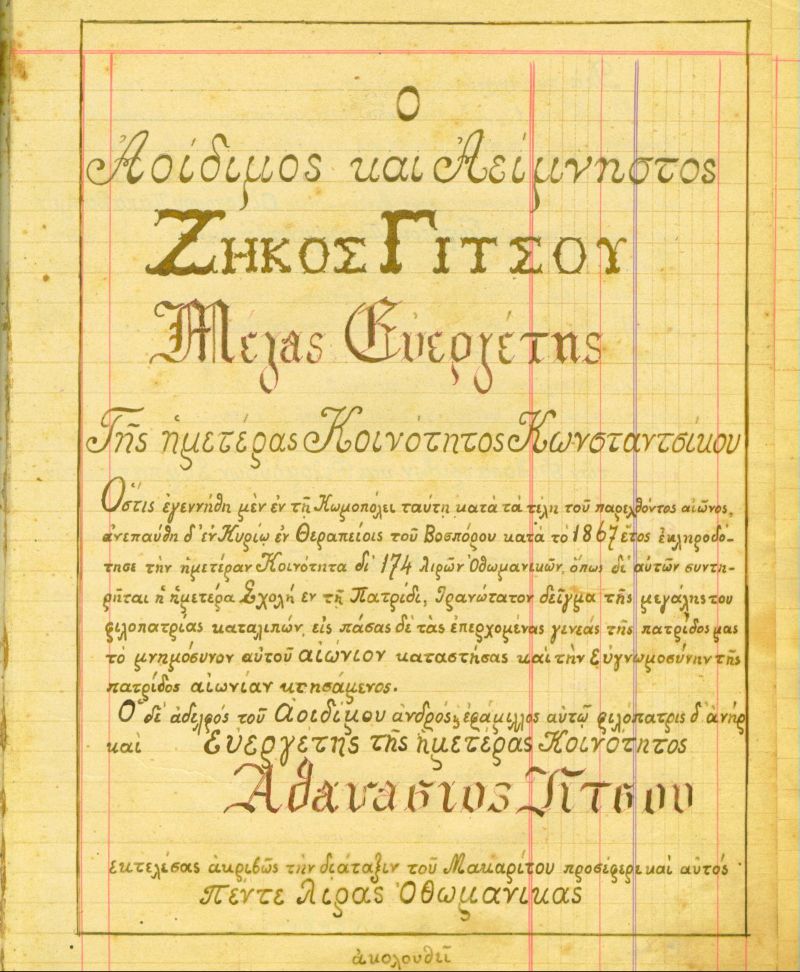 Ο
Ἀοίδιμος και Ἀείμνηστος
ΖΗΚΟΣ ΓΙΤΣΟΥ
Μέγας Εὐεργέτης
Τῆς ἡμετέρας Κοινότητος Κωνσταντσίκου
Ὅστις ἐγεννήθη μὲν ἐν τῇ Κωμοπόλει ταύτῃ κατὰ τὰ τέλη τοῦ παρελθόντος αἰῶνος,
ἀνεπαύθη δ' ἐν Κυρίῳ ἐν Θεραπείοις τοῦ Βοσπόρου κατὰ τὸ 1867 ἔτος ἐκληροδό-
τησε τὴν ἡμετέραν Κοινότητα δι' 174 λιρῶν Ὀθωμανικῶν, ὅπως δι' αὐτῶν συντη-
ρῆται ἡ ἡμετέρα Σχολή ἐν τῇ Πατρίδι, Τρανώτατον δεῖγμα τῆς μεγάλης του
φιλοπατρίας καταλιπών, εἰς πάσας δὲ τὰς ἐπερχομένας γενεάς τῆς πατρίδος μας
τὸ μνημόσυνον αὐτοῦ αἰώνιον καταστήσας καὶ τὴν εὐγνωμοσύνην τῆς
πατρίδος αἰωνίαν κτησάμενος.
Ὁ δὲ ἀδελφός τοῦ ἀοιδίμου ἀνδρός, ἐφάμιλλος αὐτῷ φιλόπατρις δ' ἀνήρ
καὶ Εὐεργέτης τῆς ἡμετέρας Κοινότητος
Ἀθανάσιος Γίτσου
ἐκτελέσας ἀκριβῶς τὴν διάταξιν τοῦ Μακαρίτου προσέφερε καὶ αὐτός
πέντε λίρας Ὀθωμανικας
ἀκολουθεῖ